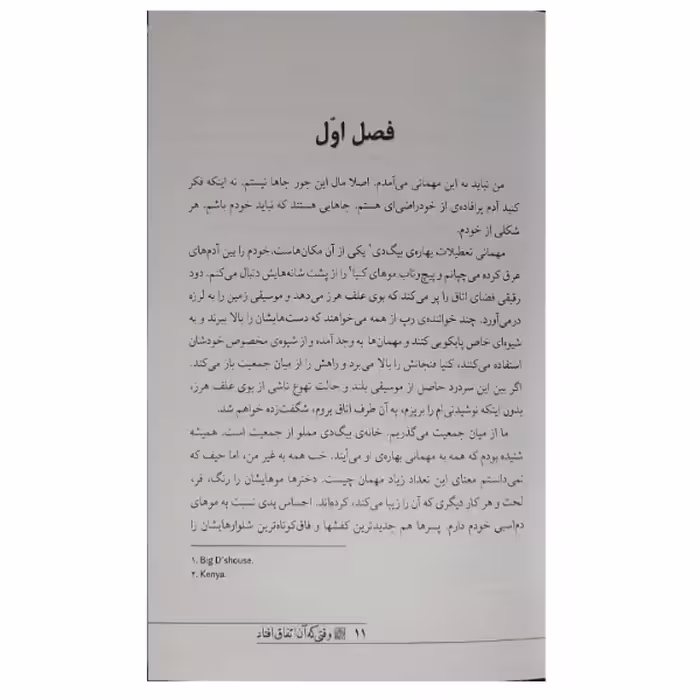 فصل اوّل
من نباید به این مهمانی می‌آمدم. اصلا مال این جور جاها نیستم. نه اینکه فکر
کنید آدم پرافاده‌ی از خودراضی‌ای هستم. جاهایی هستند که نباید خودم باشم. هر
شکلی از خودم.
مهمانی تعطیلات بهاره‌ی بیگ‌دی۱ یکی از آن مکان‌هاست. خودم را بین آدم‌های
عرق کرده می‌چپانم و پیچ‌وتاب موهای کنیا۲ را از پشت شانه‌هایش دنبال می‌کنم. دود
رقیقی فضای اتاق را پر می‌کند که بوی علف هرز می‌دهد و موسیقی زمین را به لرزه
درمی‌آورد. چند خواننده‌ی رپ از همه می‌خواهند که دست‌هایشان را بالا ببرند و به
شیوه‌ای خاص پایکوبی کنند و مهمان‌ها به وجد آمده و از شیوه‌ی مخصوص خودشان
استفاده می‌کنند. کنیا فنجانش را بالا می‌برد و راهش را از میان جمعیت باز می‌کند.
اگر بین این سردرد حاصل از موسیقی بلند و حالت تهوع ناشی از بوی علف هرز،
بدون اینکه نوشیدنی‌ام را بریزم، به آن طرف اتاق بروم، شگفت‌زده خواهم شد.
ما از میان جمعیت می‌گذریم. خانه‌ی بیگ‌دی مملو از جمعیت است. همیشه
شنیده بودم که همه به مهمانی بهاره‌ی او می‌آیند. خب همه به غیر من، اما حیف که
نمی‌دانستم معنای این تعداد زیاد مهمان چیست. دخترها موهایشان را رنگ، فر،
لخت و هر کار دیگری که آن را زیبا می‌کند، کرده‌اند. احساس بدی نسبت به موهای
دم‌اسبی خودم دارم. پسرها هم جدیدترین کفش‌ها و فاق‌کوتاه‌ترین شلوارهایشان را
۱. Big D'shouse.
۲. Kenya.
۱۱ وقتی که آن اتفاق افتاد